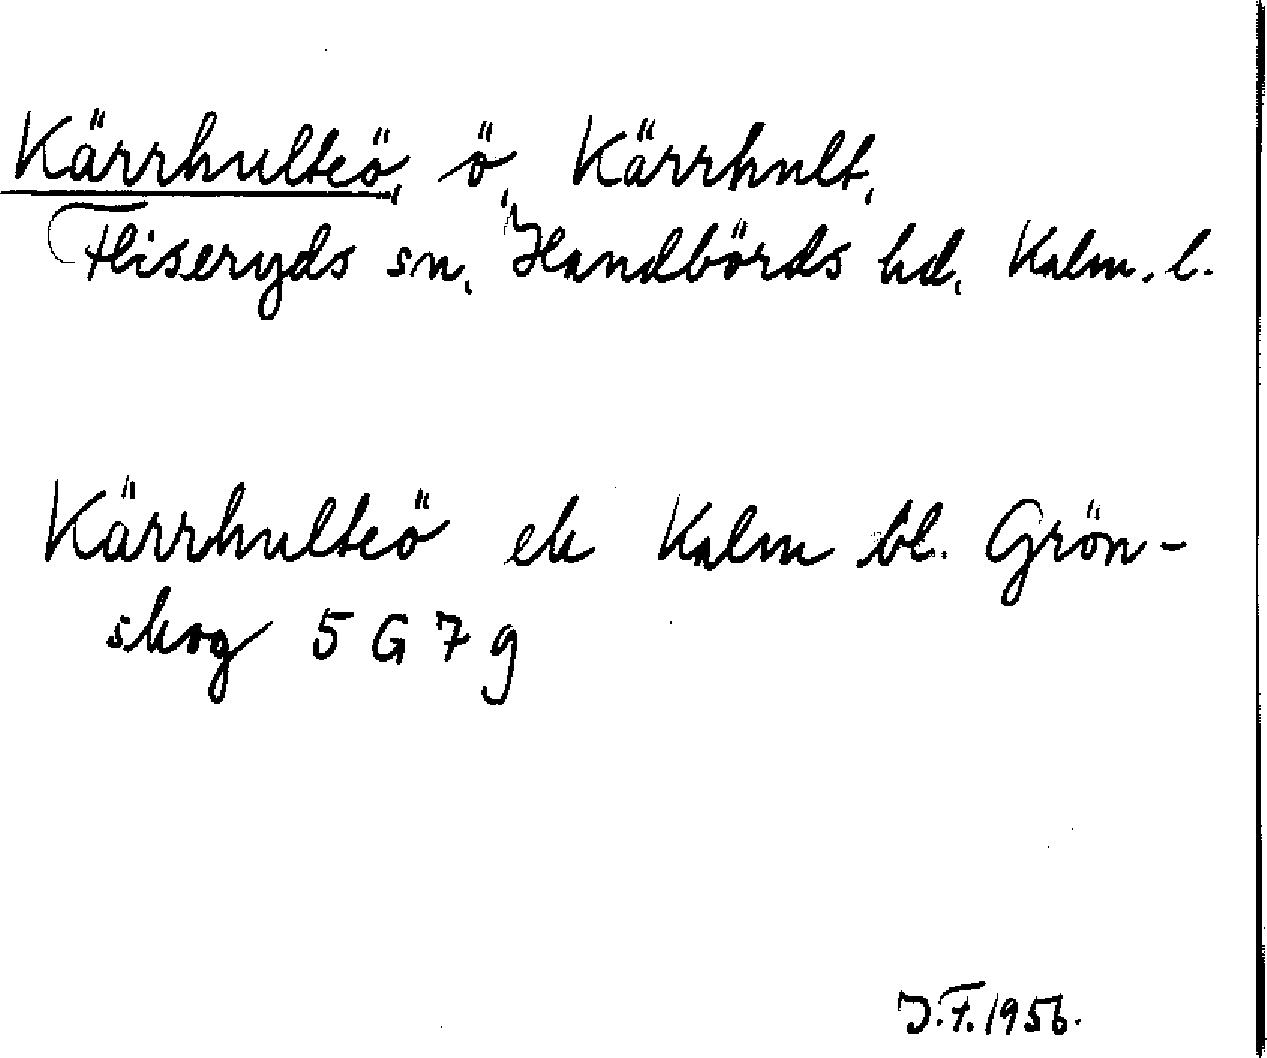 Kärrhulteö, ö, Kärrhult,
Fliseryds sn, Handbörds hd, Kalm. l.
Kärrhulteö ek Kalm bl. Grön-
skog 5 G 7 g
J.F. 1956.